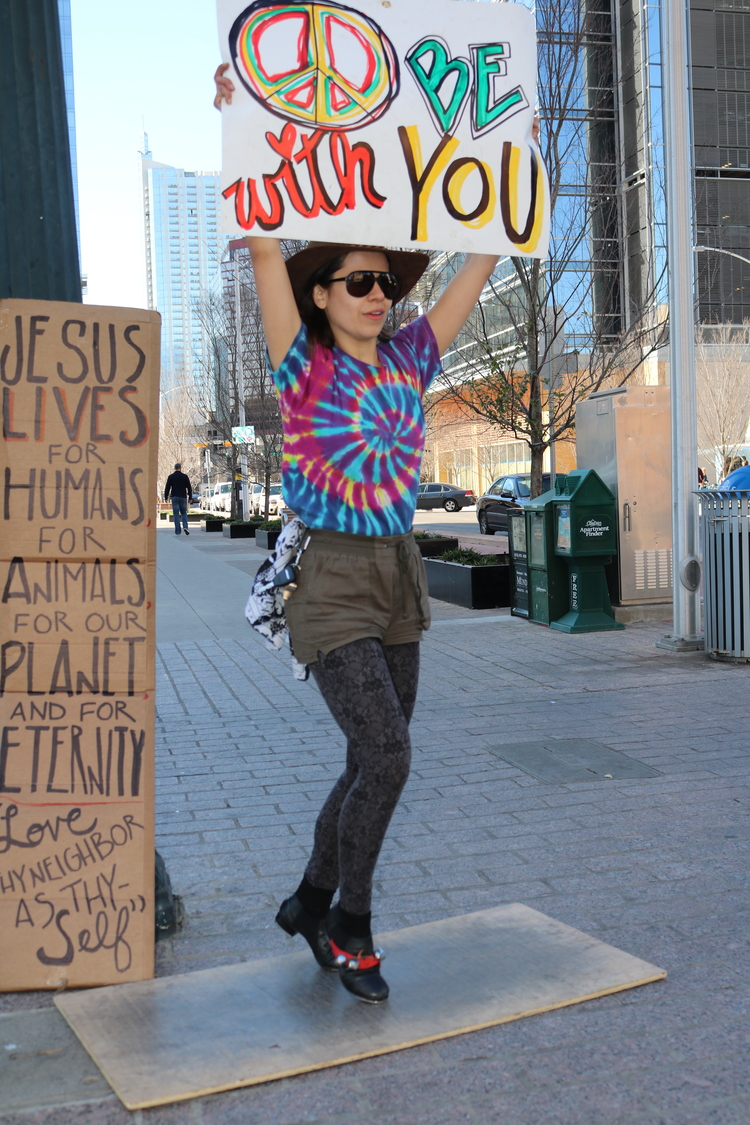 BE
with YOU
JESUS
LIVES
FOR
HUMANS
FOR
ANIMALS
FOR OUR
PLANET
AND FOR
ETERNITY
Love
THY NEIGHBOR
AS THY-
Self"
Apartment
Finder
FREE